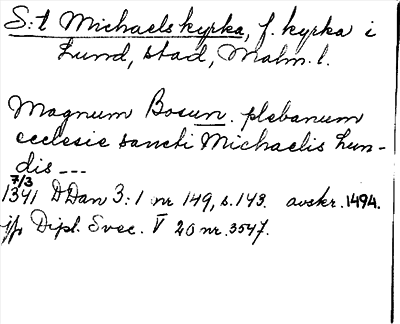 S:t Michaels kyrka, f. kyrka i
Lund, stad, Malm. l.
Magnum Bosun. plebanum
ecclesie sancti Michaelis Lun-
dis ---
7/3
1341 DDan 3:1 nr 149, s. 143. avskr. 1494.
jfr Dipl. Svec. V nr. 3547.